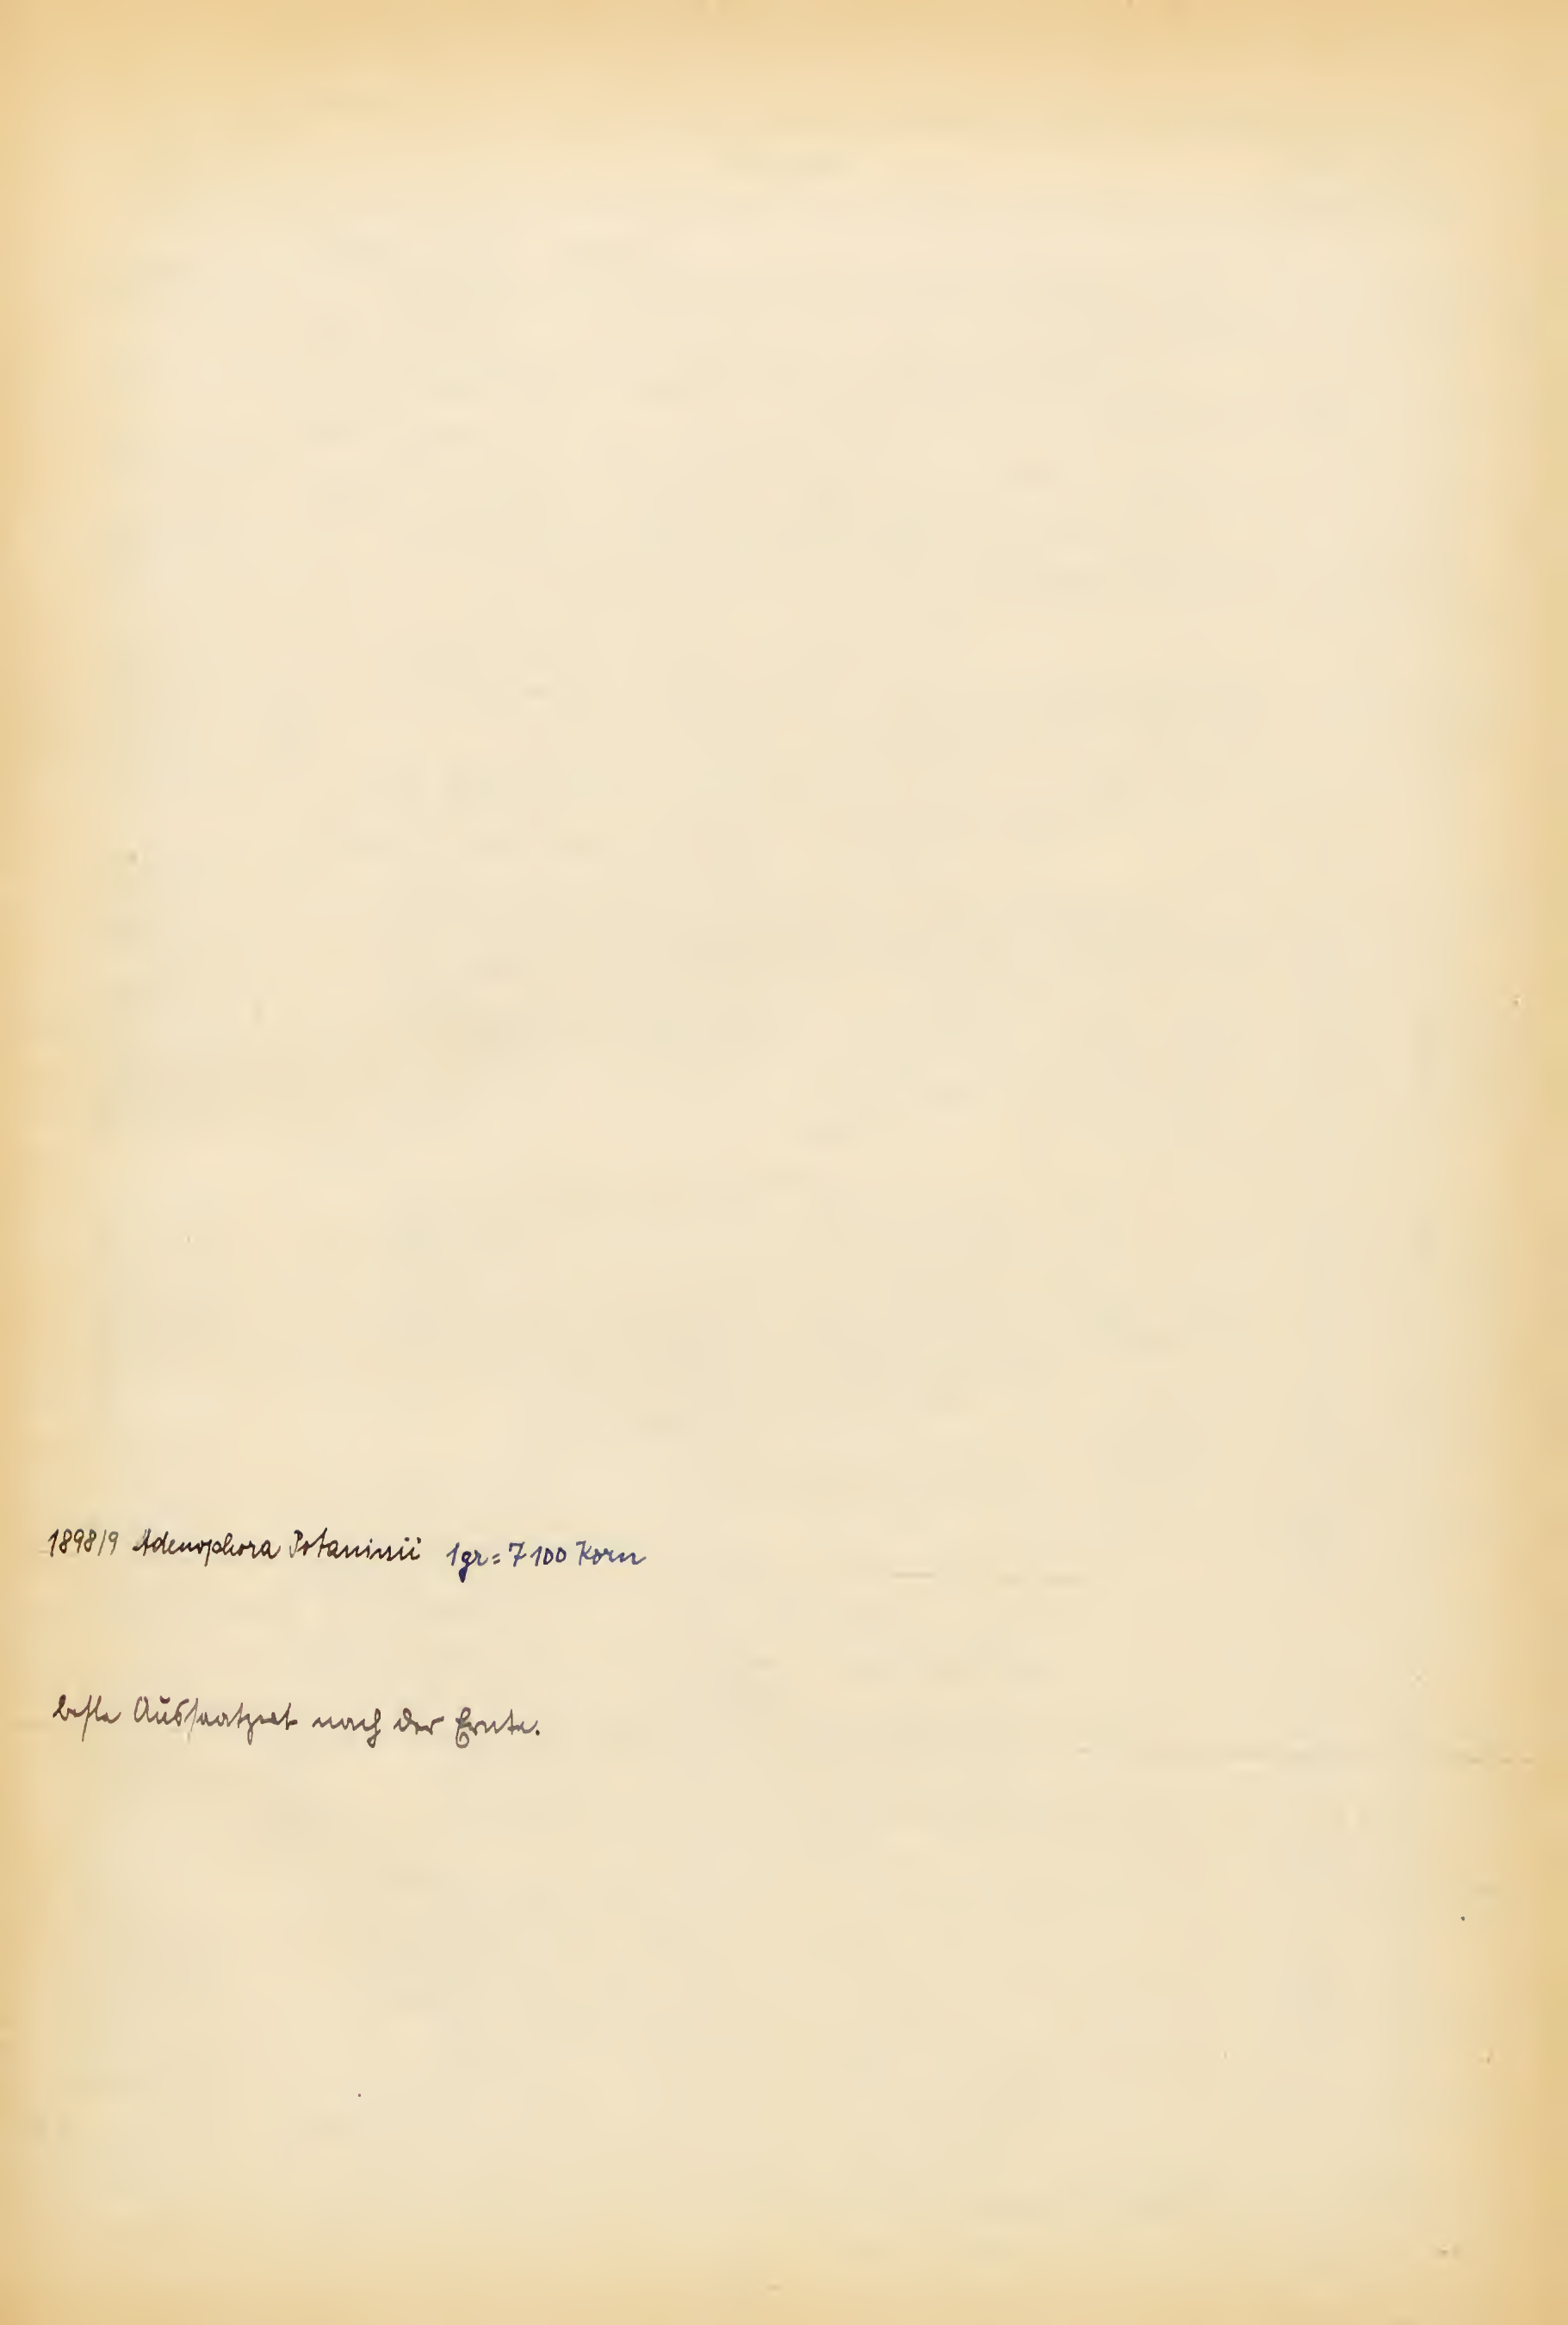 1898/9 Adenophora Potaninii 1gr = 7100 Korn
beste Aussaatzeit nach der Ernte.